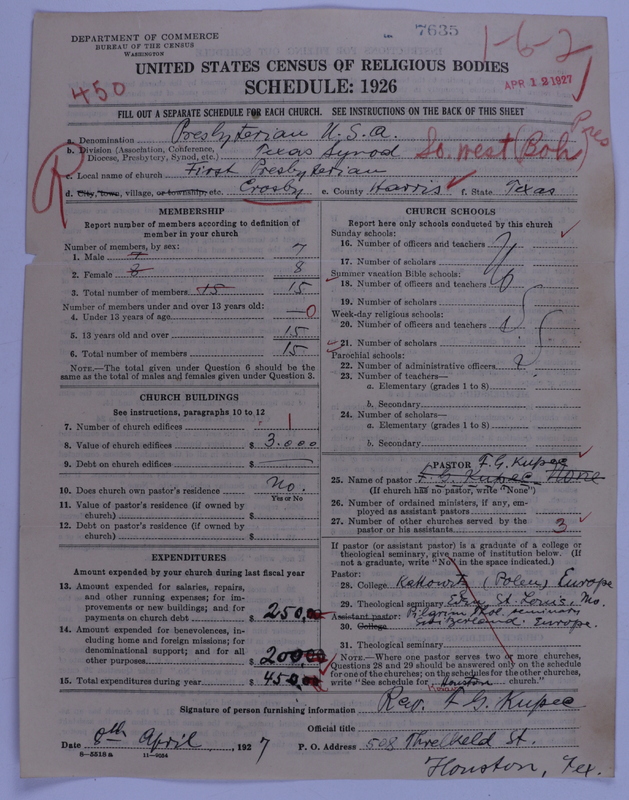 DEPARTMENT OF COMMERCE
BUREAU OF THE CENSUS
WASHINGTON
7635
1-6-2
450
APR 12 1927
UNITED STATES CENSUS OF RELIGIOUS BODIES
SCHEDULE: 1926
FILL OUT A SEPARATE SCHEDULE FOR EACH CHURCH. SEE INSTRUCTIONS ON THE BACK OF THIS SHEET
a. Denomination Presbyterian U.S.A. Pres
b. Division (Association, Conference, Diocese, Presbytery, Synod, etc.) Texas Synod So. West (Boh)
c. Local name of church First Presbyterian
d. City, town, village, or township, etc. Crosby e. County Harris f. State Texas
MEMBERSHIP
Report number of members according to definition of member in your church
Number of members, by sex:
1. Male 7 7
2. Female 8 8
3. Total number of members 15 15
Number of members under and over 13 years old:
4. Under 13 years of age —0
5. 13 years old and over 15
6. Total number of members 15
NOTE.—The total given under Question 6 should be the
same as the total of males and females given under Question 3.
CHURCH BUILDINGS
See instructions, paragraphs 10 to 12
7. Number of church edifices 1
8. Value of church edifices $ 3.000
9. Debt on church edifices $ —
10. Does church own pastor's residence no.
Yes or No
11. Value of pastor's residence (if owned by
church) $
12. Debt on pastor's residence (if owned by
church) $
EXPENDITURES
Amount expended by your church during last fiscal year
13. Amount expended for salaries, repairs,
and other running expenses; for im-
provements or new buildings; and for
payments on church debt $ 250,00
14. Amount expended for benevolences, in-
cluding home and foreign missions; for
denominational support; and for all
other purposes $ 200,00
15. Total expenditures during year $ 450,00
CHURCH SCHOOLS
Report here only schools conducted by this church
Sunday schools:
16. Number of officers and teachers
17. Number of scholars
Summer vacation Bible schools:
18. Number of officers and teachers
19. Number of scholars
Week-day religious schools:
20. Number of officers and teachers
21. Number of scholars
Parochial schools:
22. Number of administrative officers
23. Number of teachers—
a. Elementary (grades 1 to 8)
b. Secondary
24. Number of scholars—
a. Elementary (grades 1 to 8)
b. Secondary
PASTOR F. G. Kupec
25. Name of pastor F. G. Kupec None
(If church has no pastor, write "None")
26. Number of ordained ministers, if any, em-
ployed as assistant pastors
27. Number of other churches served by the
pastor or his assistants 3
If pastor (or assistant pastor) is a graduate of a college or
theological seminary, give name of institution below. (If
not a graduate, write "No" in the space indicated.)
Pastor:
28. College Kattowitz (Polen) Europe
29. Theological seminary Eden St. Louis, Mo.
Assistant pastor: Pilgrim Theol. seminary
30. College Switzerland. Europe.
31. Theological seminary
NOTE.—Where one pastor serves two or more churches,
Questions 28 and 29 should be answered only on the schedule
for one of the churches; on the schedules for the other churches,
write "See schedule for Houston church."
Signature of person furnishing information Rev. F G. Kupec
Official title
Date 8th April, 1927 P. O. Address 508 Threlkeld St.
8-5518 a 11-9054
Houston, Tex.